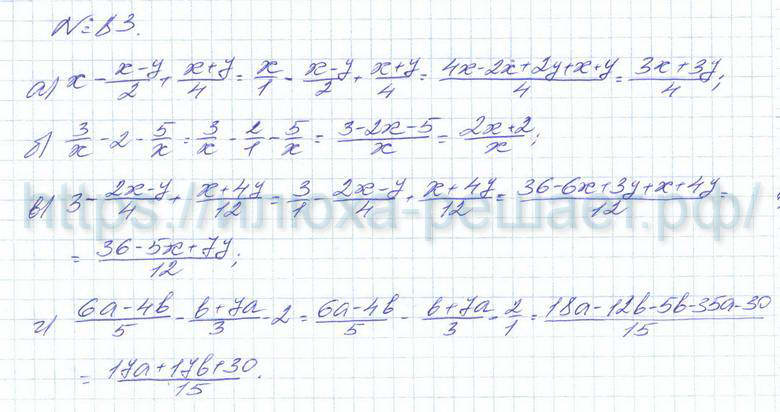 № 83.
а) x - \frac{x-y}{2} + \frac{x+y}{4} = \frac{x}{1} - \frac{x-y}{2} + \frac{x+y}{4} = \frac{4x-2x+2y+x+y}{4} = \frac{3x+3y}{4};
б) \frac{3}{x} - 2 - \frac{5}{x} = \frac{3}{x} - \frac{2}{1} - \frac{5}{x} = \frac{3-2x-5}{x} = \frac{2x+2}{x};
в) 3 - \frac{2x-y}{4} + \frac{x+4y}{12} = \frac{3}{1} - \frac{2x-y}{4} + \frac{x+4y}{12} = \frac{36-6x+3y+x+4y}{12} =
= \frac{36-5x+7y}{12};
https://плюха-решает.рф/
г) \frac{6a-4b}{5} - \frac{b+7a}{3} - 2 = \frac{6a-4b}{5} - \frac{b+7a}{3} - \frac{2}{1} = \frac{18a-12b-5b-35a-30}{15}
= \frac{17a+17b+30}{15}.